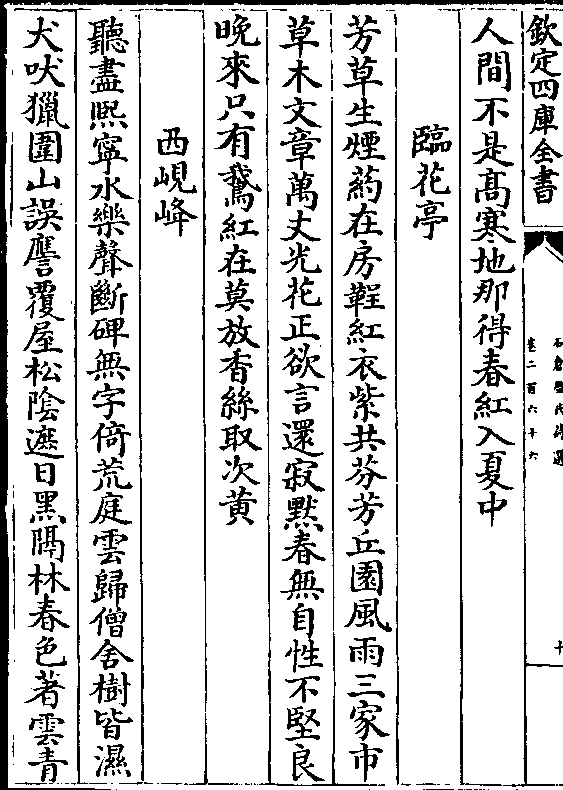 欽定四庫全書
石倉歷代詩選
卷二百六十六
十
人間不是髙寒地那得春紅入夏中
臨花亭
芳草生煙葯在房鞓紅衣紫共芬芳丘園風雨三家市
草木文章萬丈光花正欲言還寂黙春無自性不堅良
晚來只有鵞紅在莫放香絲取次黄
西峴峰
聽盡熈寧水樂聲斷碑無字倚荒庭雲歸僧舍樹皆濕
犬吠獵圍山誤譍覆屋松陰遮日黑隔林春色著雲青